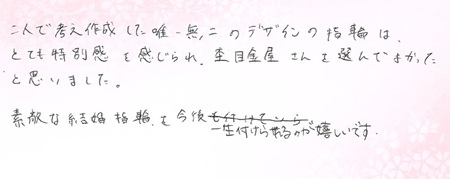 二人で考え作成した唯一無二のデザインの指輪は、
とても特別感を感じられ、杢目金屋さんを選んでよかった
と思いました。
素敵な結婚指輪を今後
一生付けられるのが嬉しいです。